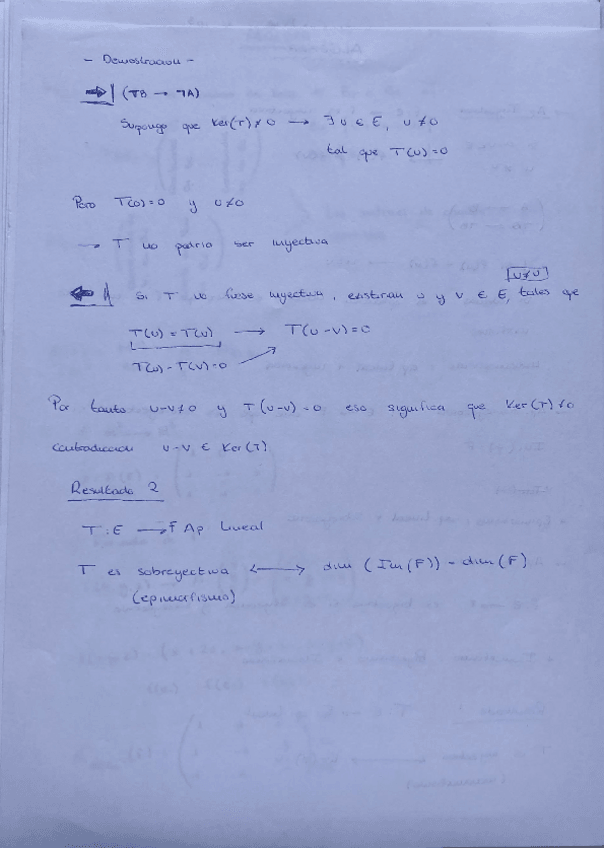 - Demostracion -
⇒| (¬B → ¬A)
Supongo que Ker(T) ≠ 0 → ∃ u ∈ E, u ≠ 0
tal que T(u) = 0
Pero T(0) = 0 y u ≠ 0
→ T no podria ser inyectiva
⇐| Si T no fuese inyectiva, existirian u y v ∈ E, tales que
u ≠ v
T(u) = T(v) → T(u - v) = 0
T(u) - T(v) = 0
Por tanto u - v ≠ 0 y T(u - v) = 0 eso significa que Ker(T) ≠ 0
contradiccion u - v ∈ Ker(T)
Resultado 2
T: E → F Ap lineal
T es sobreyectiva ⟷ dim (Im(F)) = dim(F)
(epimorfismo)